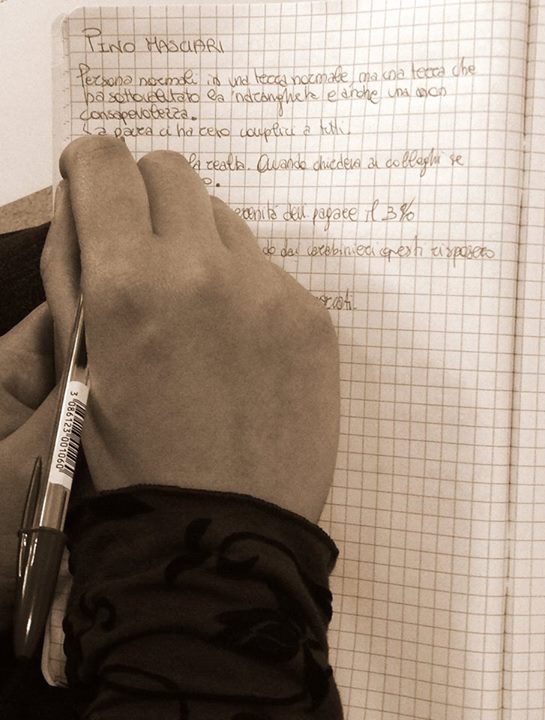 PINO MASCIARI
Persona normale in una terra normale, ma una terra che
ha sottovalutato la 'ndrangheta e anche una non
consapevolezza.
La paura ci ha reso complici a tutti.
la realtà. Quando chiedeva ai colleghi se
o.
dell pagare il 3%
do dai carabinieri questi risposero
3 086123 001060